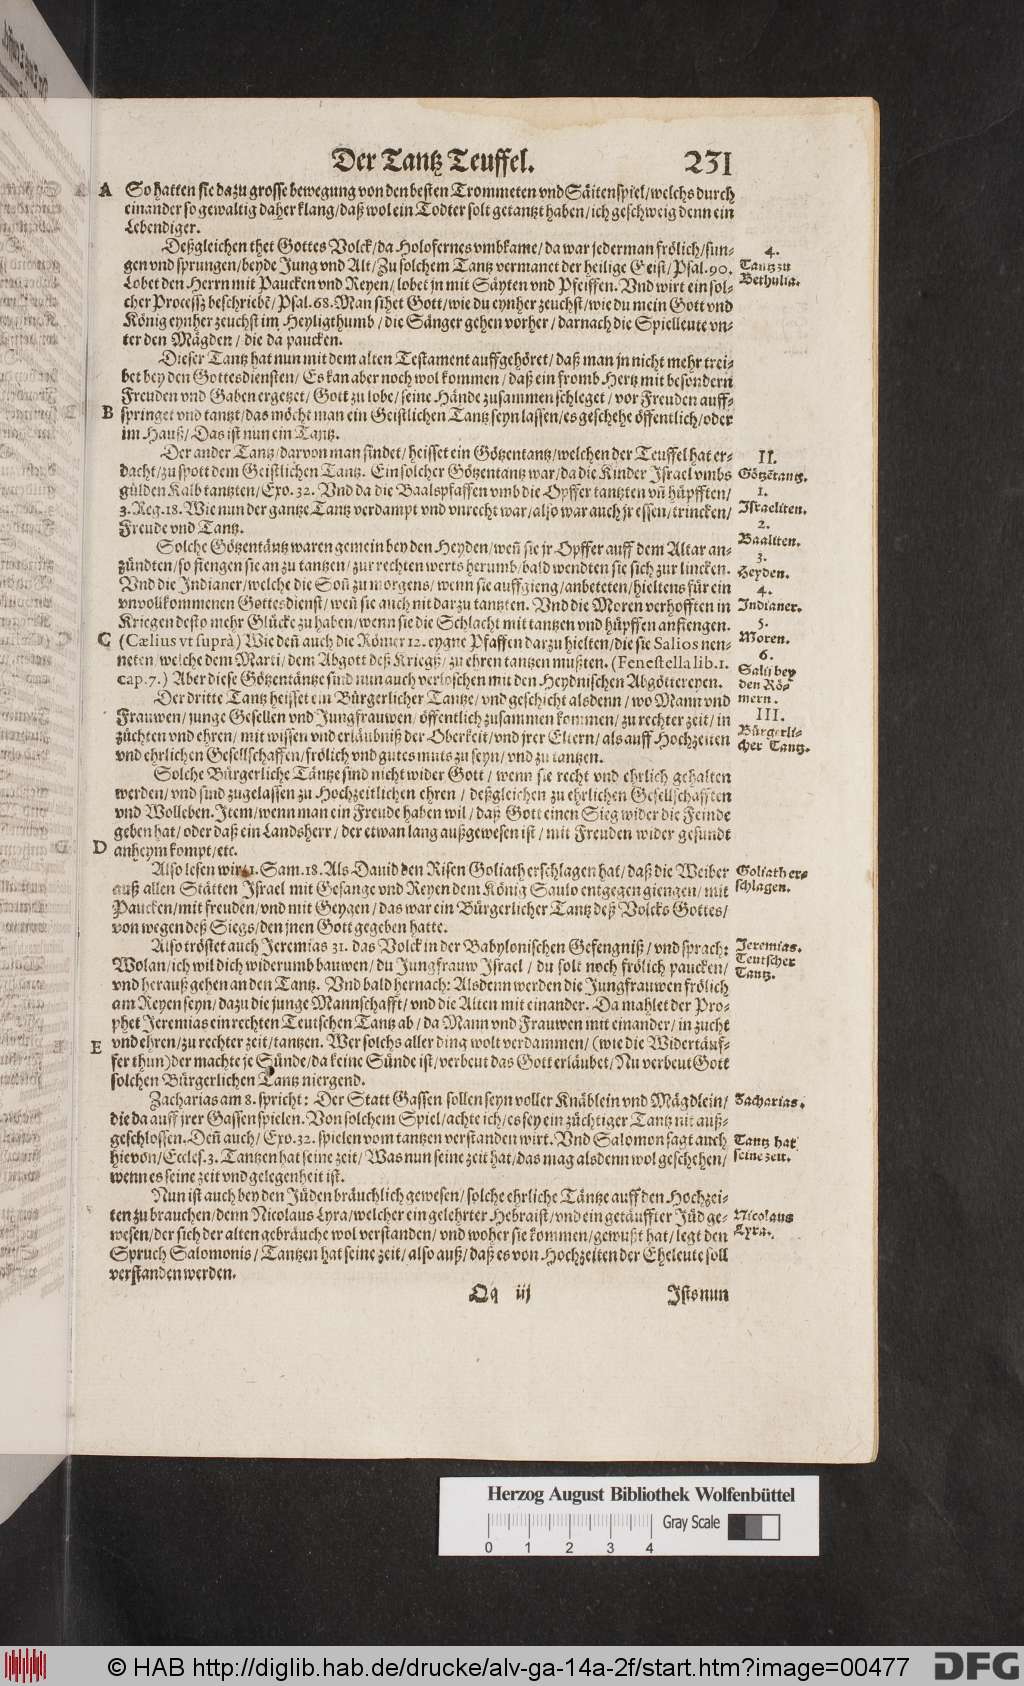 Der Tantz Teuffel. 231
A So hatten sie dazu grosse bewegung von den besten Trommeten vnd Säitenspiel/welchs durch
einander so gewaltig daher klang/daß wol ein Todter solt getantzt haben/ich geschweig denn ein
Lebendiger.
Deßgleichen thet Gottes Volck/da Holofernes vmbkame/da war jederman frölich/sun-
gen vnd sprungen/beyde Jung vnd Alt/Zu solchem Tantz vermanet der heilige Geist/Psal.90.
Lobet den Herrn mit Paucken vnd Reyen/lobet jn mit Säyten vnd Pfeiffen. Vnd wirt ein sol-
cher Processz beschriebē/Psal.68. Man sihet Gott/wie du eynher zeuchst/wie du mein Gott vnd
König eynher zeuchst im Heyligthumb/die Sänger gehen vorher/darnach die Spielleute vn-
ter den Mägden/die da paucken.
4.
Tantz zu
Bethulia.
Dieser Tantz hat nun mit dem alten Testament auffgehöret/daß man jn nicht mehr trei-
bet bey den Gottesdiensten/Es kan aber noch wol kommen/daß ein fromb Hertz mit besondern
Freuden vnd Gaben ergetzet/Gott zu lobe/seine Hände zusammen schleget/vor Freuden auff-
B springet vnd tantzt/das möcht man ein Geistlichen Tantz seyn lassen/es geschehe öffentlich/oder
im Hauß/Das ist nun ein Tantz.
Der ander Tantz/darvon man findet/heisset ein Götzentantz/welchen der Teuffel hat er-
dacht/zu spott dem Geistlichen Tantz. Ein solcher Götzentantz war/da die Kinder Israel vmbs
gülden Kalb tantzten/Exo.32. Vnd da die Baalspfaffen vmb die Opffer tantzten vñ hüpfften/
3.Reg.18. Wie nun der gantze Tantz verdampt vnd vnrecht war/also war auch jr essen/trincken/
Freude vnd Tantz.
II.
Götzētantz.
1.
Israeliten.
2.
Baaliten.
3.
Heyden.
4.
Indianer.
5.
Moren.
6.
Salij bey
den Rö-
mern.
Solche Götzentäntz waren gemein bey den Heyden/weñ sie jr Opffer auff dem Altar an-
zündten/so fiengen sie an zu tantzen/zur rechten werts herumb/bald wendten sie sich zur lincken.
Vnd die Indianer/welche die Soñ zu morgens/wenn sie auffgieng/anbeteten/hieltens für ein
vnvollkommenen Gottesdienst/weñ sie auch nit darzu tantzten. Vnd die Moren verhofften in
Kriegen desto mehr Glücke zu haben/wenn sie die Schlacht mit tantzen vnd hüpffen anfiengen.
C (Cælius vt suprà) Wie deñ auch die Römer 12. eygne Pfaffen darzu hielten/die sie Salios nen-
neten/welche dem Marti/dem Abgott deß Kriegß/zu ehren tantzen mußten. (Fenestella lib.1.
cap.7.) Aber diese Götzentäntze sind nun auch verloschen mit den Heydnischen Abgöttereyen.
Der dritte Tantz heisset ein Bürgerlicher Tantze/vnd geschicht alsdenn/wo Mann vnd
Frauwen/junge Gesellen vnd Jungfrauwen/öffentlich zusammen kommen/zu rechter zeit/in
züchten vnd ehren/mit wissen vnd erläubniß der Oberkeit/vnd jrer Eltern/als auff Hochzeiten
vnd ehrlichen Gesellschaffen/frölich vnd gutes muts zu seyn/vnd zu tantzen.
III.
Bürgerli-
cher Tantz.
Solche Bürgerliche Täntze sind nicht wider Gott/wenn sie recht vnd ehrlich gehalten
werden/vnd sind zugelassen zu Hochzeitlichen ehren/deßgleichen zu ehrlichen Gesellschafften
vnd Wolleben. Item/wenn man ein Freude haben wil/daß Gott einen Sieg wider die Feinde
geben hat/oder daß ein Landsherr/der etwan lang außgewesen ist/mit Freuden wider gesundt
D anheym kompt/etc.
Also lesen wir 1.Sam.18. Als Dauid den Risen Goliath erschlagen hat/daß die Weiber
auß allen Stätten Israel mit Gesange vnd Reyen dem König Saulo entgegen giengen/mit
Paucken/mit freuden/vnd mit Geygen/das war ein Bürgerlicher Tantz deß Volcks Gottes/
von wegen deß Siegs/den jnen Gott gegeben hatte.
Goliath er-
schlagen.
Also tröstet auch Jeremias 31. das Volck in der Babylonischen Gefengniß/vnd sprach:
Wolan/ich wil dich widerumb bauwen/du Jungfrauw Israel/du solt noch frölich paucken/
vnd herauß gehen an den Tantz. Vnd bald hernach: Alsdenn werden die Jungfrauwen frölich
am Reyen seyn/dazu die junge Mannschafft/vnd die Alten mit einander. Da mahlet der Pro-
phet Jeremias ein rechten Teutschen Tantz ab/da Mann vnd Frauwen mit einander/in zucht
E vnd ehren/zu rechter zeit/tantzen. Wer solchs aller ding wolt verdammen/(wie die Widertäuf-
fer thun)der machte je Sünde/da keine Sünde ist/verbeut das Gott erläubet/Nu verbeut Gott
solchen Bürgerlichen Tantz niergend.
Jeremias.
Teutscher
Tantz.
Zacharias am 8. spricht: Der Statt Gassen sollen seyn voller Knäblein vnd Mägdlein/
die da auff jrer Gassen spielen. Von solchem Spiel/achte ich/es sey ein züchtiger Tantz nit auß-
geschlossen. Deñ auch/Exo.32. spielen vom tantzen verstanden wirt. Vnd Salomon sagt auch
hievon/Eccles.3. Tantzen hat seine zeit/Was nun seine zeit hat/das mag alsdenn wol geschehen/
wenn es seine zeit vnd gelegenheit ist.
Zacharias.
Tantz hat
seine zeit.
Nun ist auch bey den Jüden bräuchlich gewesen/solche ehrliche Täntze auff den Hochzei-
ten zu brauchen/denn Nicolaus Lyra/welcher ein gelehrter Hebraist/vnd ein getäuffter Jüd ge-
wesen/der sich der alten gebräuche wol verstanden/vnd woher sie kommen/gewußt hat/legt den
Spruch Salomonis/Tantzen hat seine zeit/also auß/daß es von Hochzeiten der Eheleute soll
verstanden werden.
Nicolaus
Lyra.
Qq iij Ists nun
Herzog August Bibliothek Wolfenbüttel
Gray Scale
0 1 2 3 4
© HAB http://diglib.hab.de/drucke/alv-ga-14a-2f/start.htm?image=00477 DFG